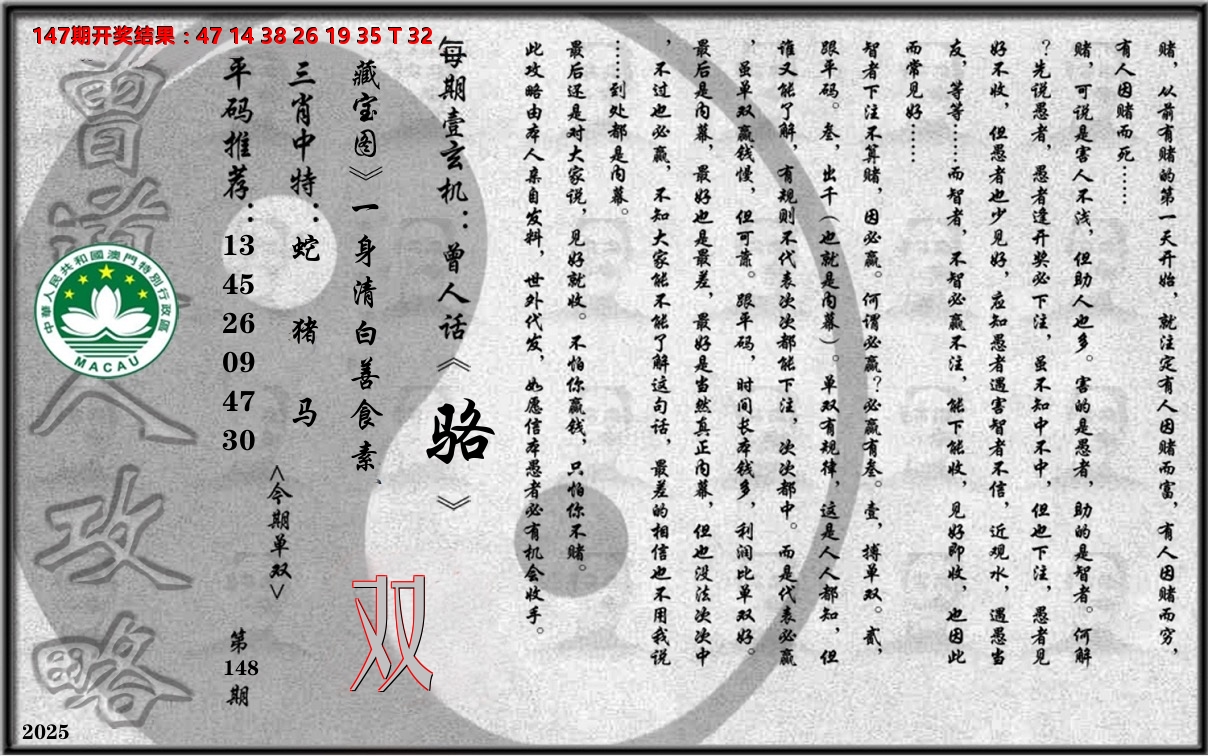 147期开奖结果：47 14 38 26 19 35 T 32
赌，从前有赌的第一天开始，就注定有人因赌而富，有人因赌而穷，
有人因赌而死……
赌，可说是害人不浅，但助人也多。害的是愚者，助的是智者。何解
？先说愚者，愚者逢开奖必下注，虽不知中不中，但也下注，愚者见
好不收，但愚者也少见好，应知愚者遇害智者不信，近观水，遇愚当
友，等等……而智者，不智必赢不注，能下能收，见好即收，也因此
而常见好……
智者下注不算赌，因必赢。何谓必赢？必赢有叁。壹，搏单双。贰，
跟平码。叁，出千（也就是内幕）。单双有规律，这是人人都知，但
谁又能了解，有规则不代表次次都能下注，次次都中。而是代表必赢
，虽单双赢钱慢，但可靠。跟平码，时间长本钱多，利润比单双好。
最后是内幕，最好也是最差，最好是当然真正内幕，但也没法次次中
，不过也必赢，不知大家能不能了解这句话，最差的相信也不用我说
……到处都是内幕。
最后还是对大家说，见好就收。不怕你赢钱，只怕你不赌。
此攻略由本人亲自发料，世外代发，如愿信本愚者必有机会收手。
每期壹玄机：曾人话《骆》
藏宝图》一身清白善食素
双
三肖中特：蛇 猪 马
<今期单双>
平码推荐：13 45 26 09 47 30
第148期
曾道人攻略
中華人民共和國澳門特別行政區
MACAU
2025